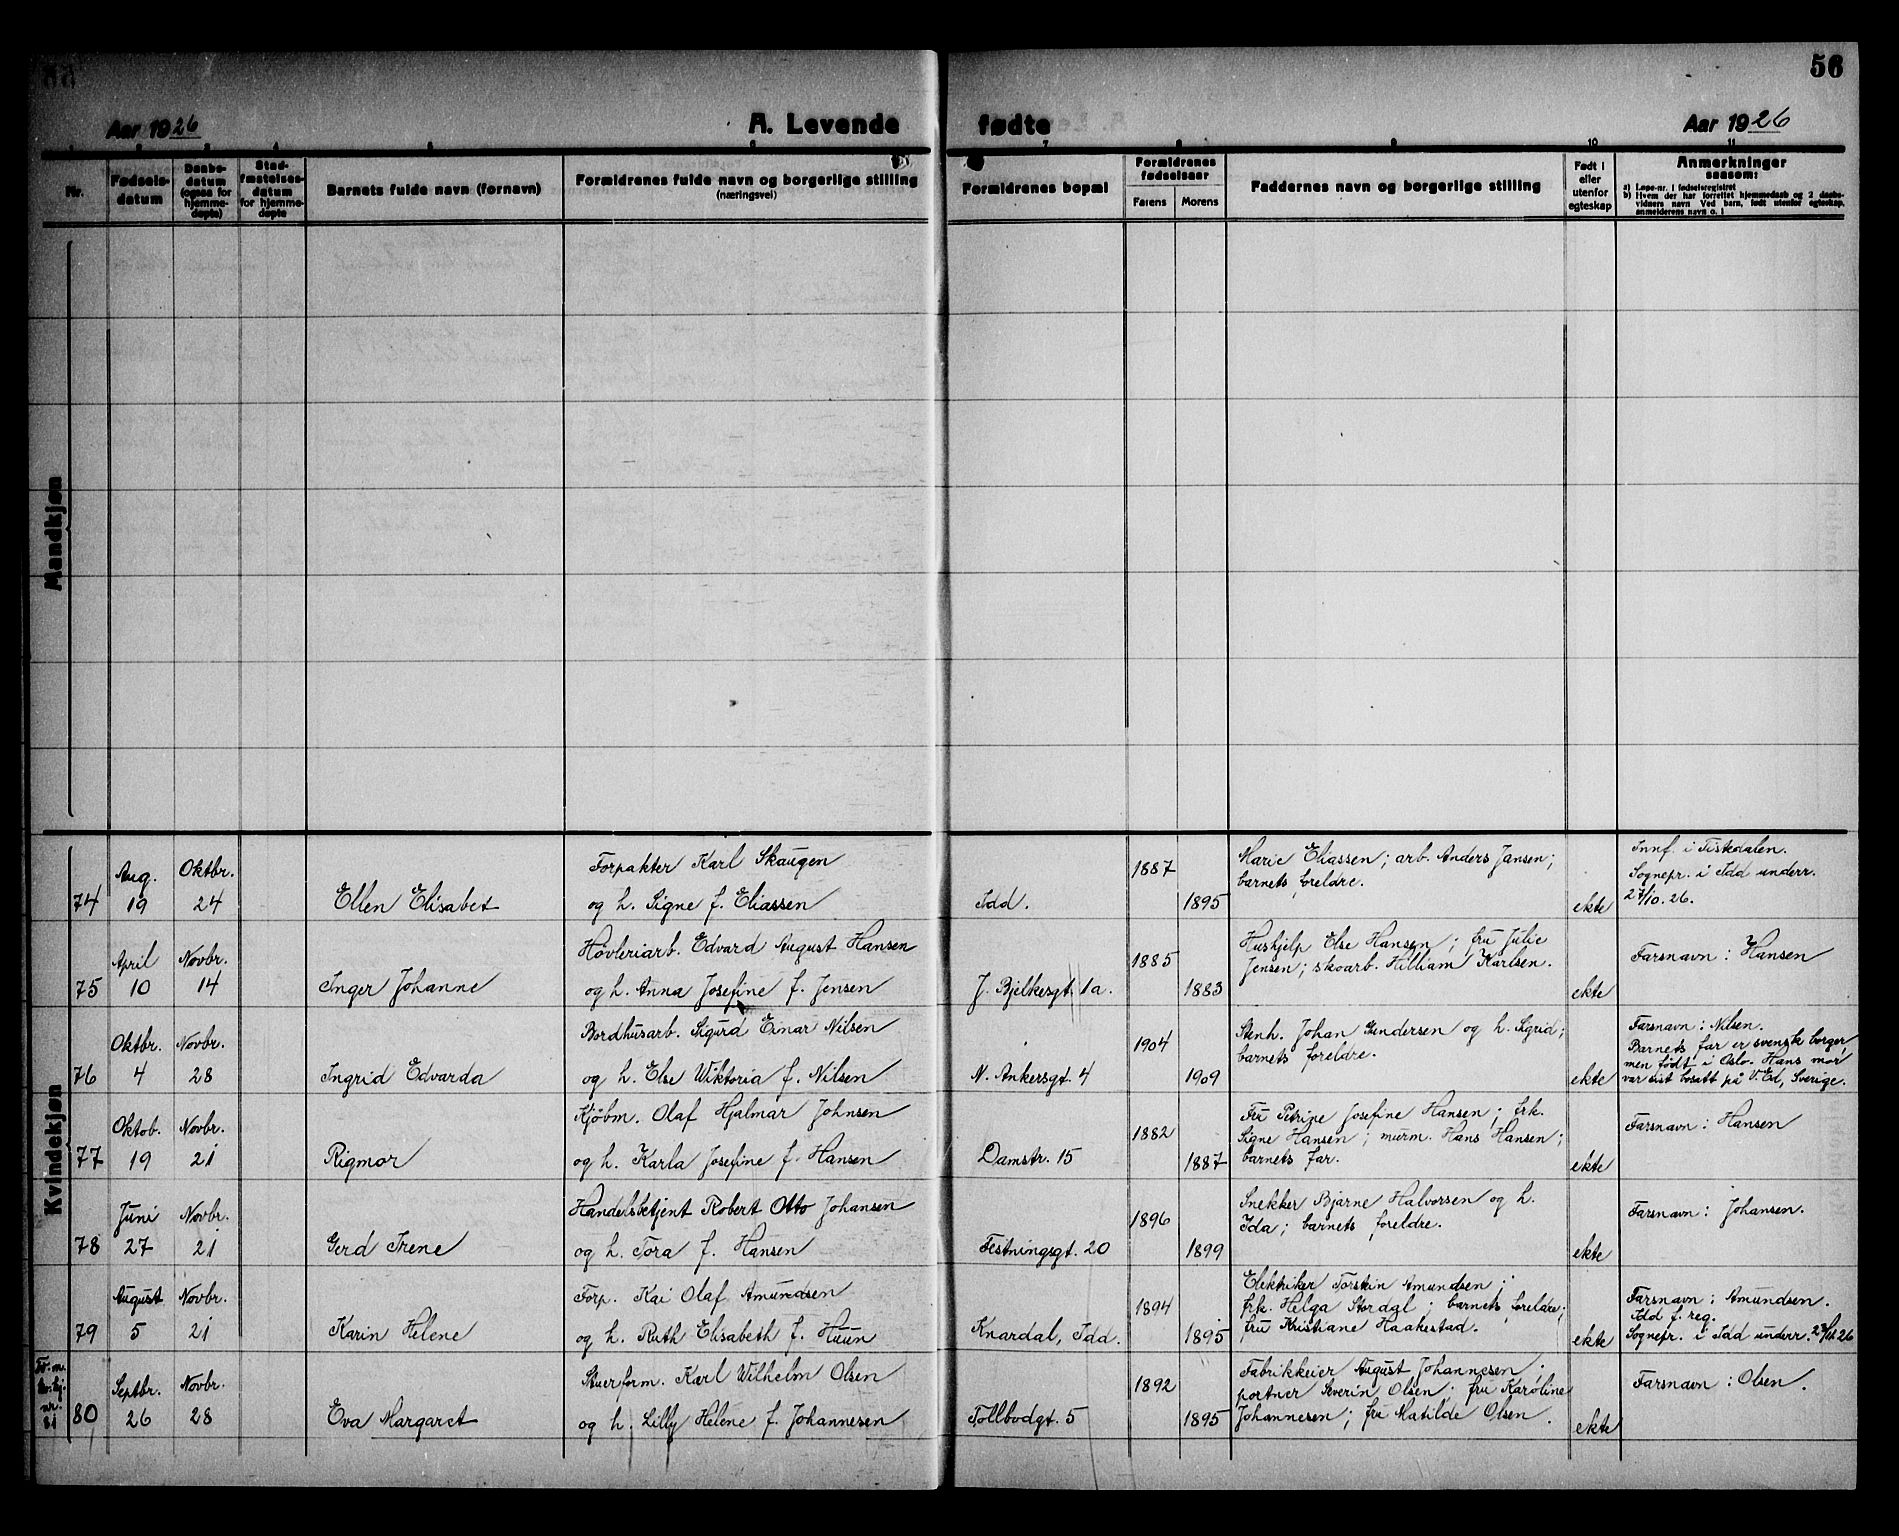 56
Aar 1926
A. Levende
fødte
Aar 1926
1 2 3 4 5 6 7 8 9 10 11
Nr.
Fødsels-
datum
Daabs-
datum
(ogsaa for
hjemme-
døpte)
Stad-
fæstelses-
datum
for hjemme-
døpte
Barnets fulde navn (fornavn)
Forældrenes fulde navn og borgerlige stilling
(næringsvei)
Forældrenes bopæl
Forældrenes
fødselsaar
Farens
Morens
Faddernes navn og borgerlige stilling
Født i
eller
utenfor
egteskap
Anmerkninger
saasom:
a) Løpe-nr. i fødselsregistret
b) Hvem der har forrettet hjemmedaab og 2 daabs-
vidners navn Ved barn, født utenfor egteskap,
anmelderens navn o. l
Mandkjøn
Kvindekjøn
74
Aug.
19
Oktbr.
24
Ellen Elisabet
Forpakter Karl Skaugen
og h. Signe f. Eliassen
Idd.
1887
1895
Marie Eliassen; arb. Anders Jansen;
barnets foreldre.
ekte
Innf. i Tistedalen.
Sognepr. i Idd underr.
27/10.26.
75
April
10
Novbr.
14
Inger Johanne
Høvleriarb. Edvard August Hansen
og h. Anna Josefine f. Jensen
J. Bjelkesgt. 1a.
1885
1883
Hushjelp Else Hansen; fru Julie
Jensen; skoarb. Hilliam Karlsen.
ekte
Farsnavn: Hansen
76
Oktbr.
4
Novbr.
28
Ingrid Edvarda
Bordhusarb. Sigurd Einar Nilsen
og h. Else Wiktoria f. Nilsen
N. Ankersgt. 4
1904
1909
Stenh. Johan Gundersen og h. Sigrid;
barnets foreldre.
ekte
Farsnavn: Nilsen.
Barnets far er svensk borger,
men født i Oslo. Hans mor
var sist bosatt på V. Ed, Sverige.
77
Oktob.
19
Novbr.
21
Rigmor
Kjøbm. Olaf Hjalmar Johnsen
og h. Karla Josefine f. Hansen
Damstr. 15
1882
1887
Fru Petrine Josefine Hansen; frk.
Signe Hansen; murm. Hans Hansen;
barnets far.
ekte
Farsnavn: Hansen
78
Juni
27
Novbr.
21
Gerd Irene
Handelsbetjent Robert Otto Johansen
og h. Tora f. Hansen
Festningsgt. 20
1896
1899
Snekker Bjarne Halvorsen og h.
Ida; barnets foreldre.
ekte
Farsnavn: Johansen.
79
August
5
Novbr.
21
Karin Helene
Forp. Kai Olaf Amundsen
og h. Ruth Elisabeth f. Huun
Knardal, Idd.
1894
1895
Elektriker Torstein Amundsen;
frk. Helga Stordal; barnets foreldre;
fru Kristiane Haakestad.
ekte
Farsnavn: Amundsen.
Idd f. reg.
Sognepr. i Idd underr.
nr.
81
80
Septbr.
26
Novbr.
28
Eva Margaret
Stuerform. Karl Wilhelm Olsen
og h. Lilly Helene f. Johannesen
Tollbodgt. 5
1892
1895
Fabrikkeier August Johannesen;
portner Severin Olsen; fru Karoline
Johannesen; fru Matilde Olsen.
ekte
Farsnavn: Olsen.